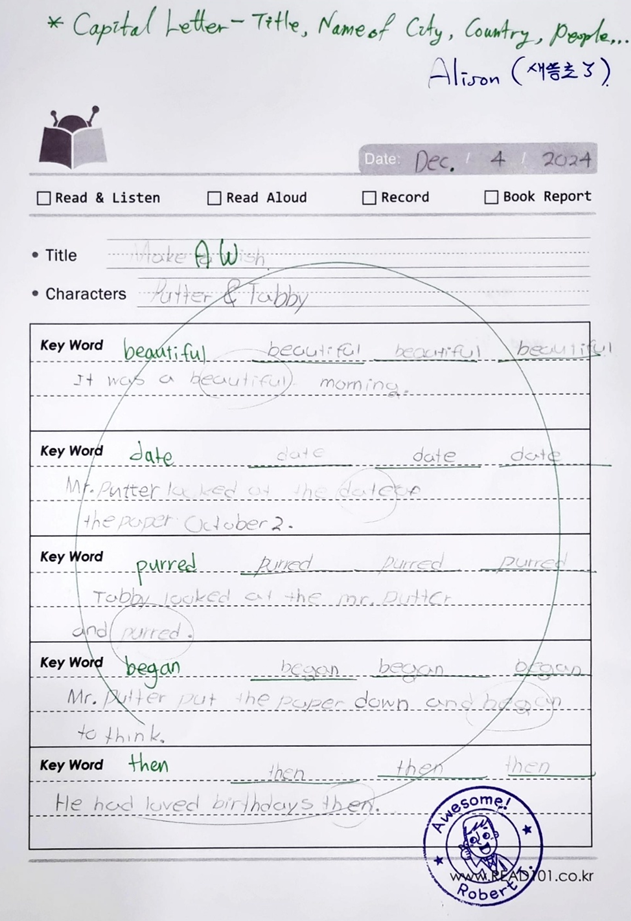 * Capital Letter - Title, Name of City, Country, People,...
Alison (새뜸초 3)
Date: Dec. / 4 / 2024
Read & Listen Read Aloud Record Book Report
• Title Make A Wish
• Characters Putter & Tabby
Key Word beautiful beautiful beautiful beautiful
It was a beautiful morning.
Key Word date date date date
Mr. Putter looked at the date of
the paper October 2.
Key Word purred purred purred purred
Tabby looked at the mr. Putter
and purred.
Key Word began began began began
Mr. Putter put the paper down and began
to think.
Key Word then then then then
He had loved birthdays then.
Awesome!
www.READ101.co.kr
Robert